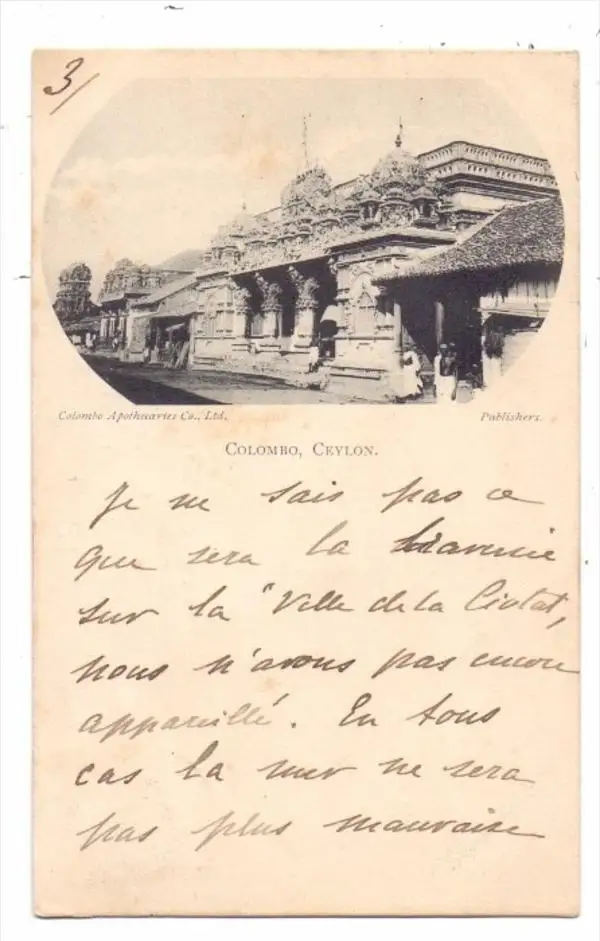 3/
Colombo Apothecaries Co., Ltd.
Publishers.
COLOMBO, CEYLON.
Je ne sais pas ce
que sera la
sur la "Ville de la Ciotat,
nous n'avons pas encore
appareillé. En tous
cas la mer ne sera
pas plus mauvaise